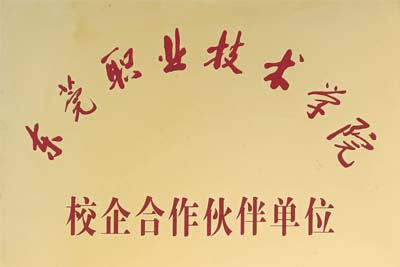 东莞职业技术学院
校企合作伙伴单位